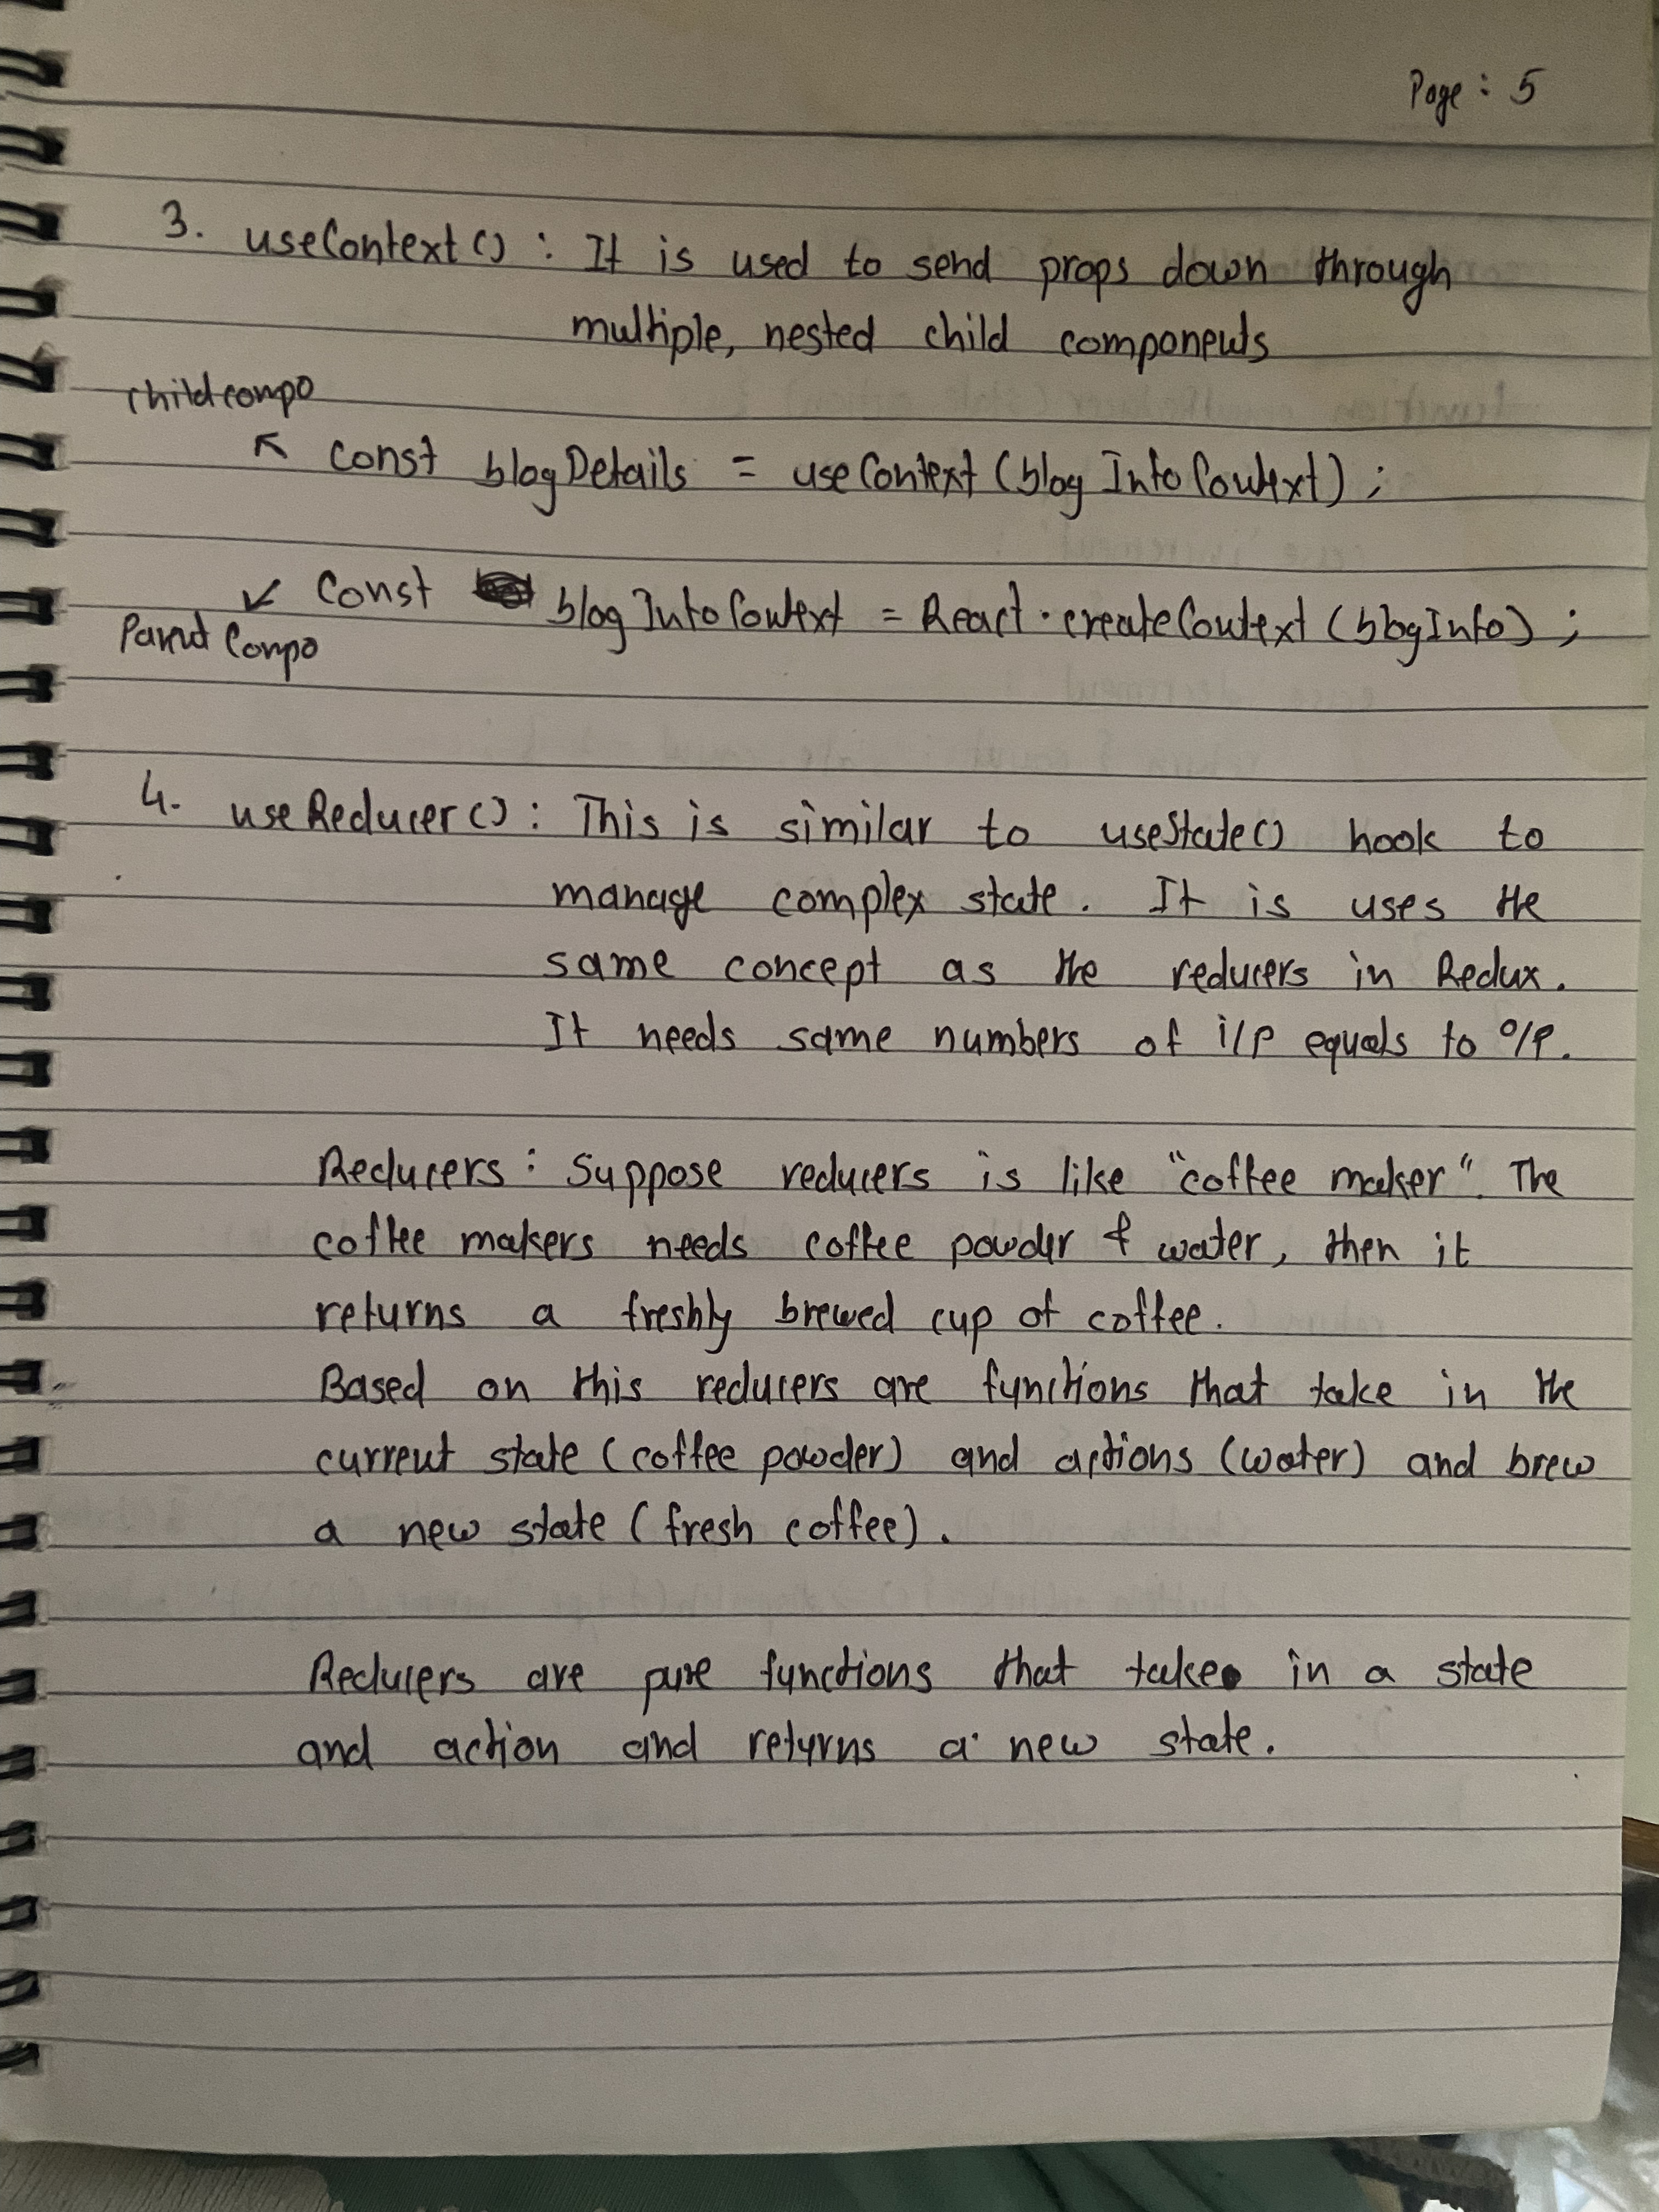 Page : 5
3. useContext() : It is used to send props down through
multiple, nested child components
child compo
const blogDetails = useContext(blogInfoContext);
const blogInfoContext = React.createContext(blogInfo);
Parent Compo
4. useReducer() : This is similar to useState() hook to
manage complex state. It is uses the
same concept as the reducers in Redux.
It needs same numbers of i/p equals to o/p.
Reducers : Suppose reducers is like "coffee maker". The
coffee makers needs coffee powder & water, then it
returns a freshly brewed cup of coffee.
Based on this reducers are functions that take in the
current state (coffee powder) and actions (water) and brew
a new state (fresh coffee).
Reducers are pure functions that take in a state
and action and returns a new state.